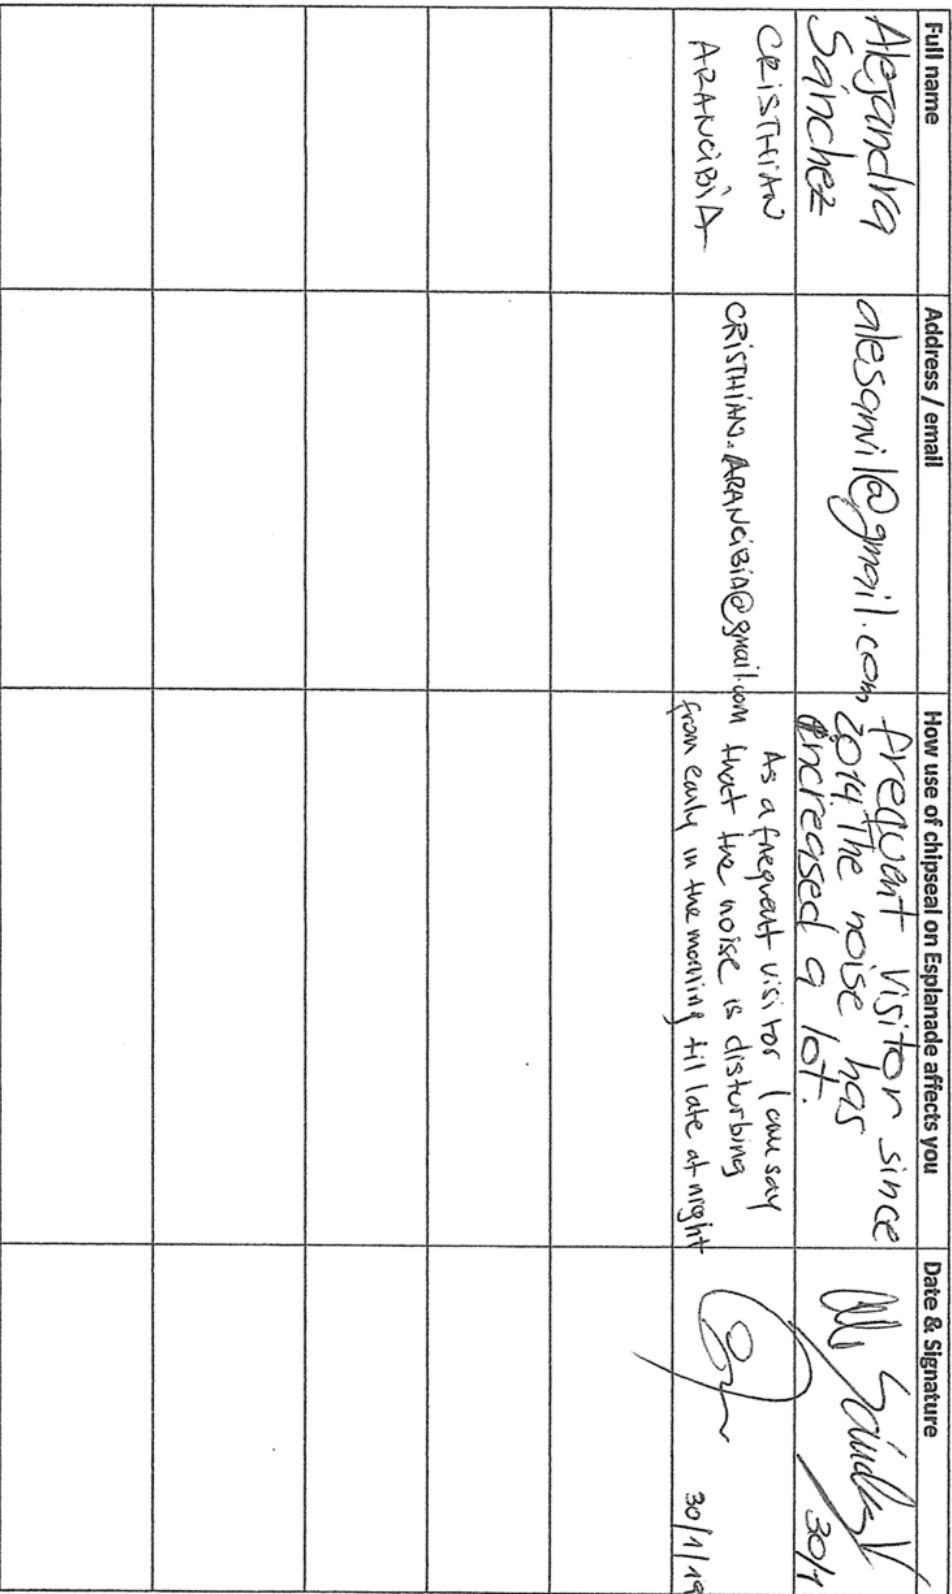 Full name
Address / email
How use of chipseal on Esplanade affects you
Date & Signature
Alejandra
Sánchez
alesanvil@gmail.com
frequent visitor since
2014. The noise has
increased a lot.
30/1
CRISTHIAN
ARANCIBIA
CRISTHIAN.ARANCIBIA@gmail.com
As a frequent visitor I can say
that the noise is disturbing
from early in the morning til late at night
30/1/19